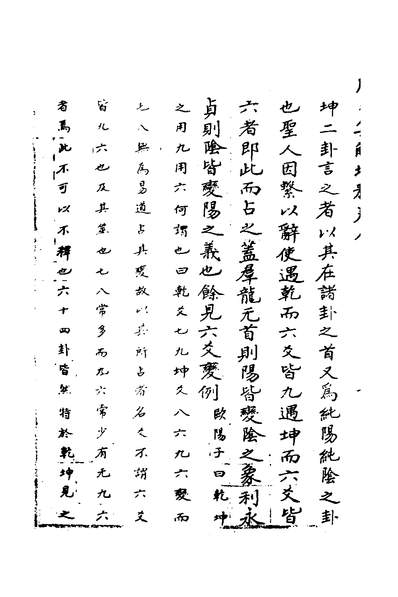 坤二卦言之者以其在諸卦之首又爲純陽純陰之卦
也聖人因繫以辭使遇乾而六爻皆九遇坤而六爻皆
六者即此而占之蓋羣龍无首則陽皆變陰之象利永
貞則陰皆變陽之義也餘見六爻變例 歐陽子曰乾坤
之用九用六何謂也曰乾爻七九坤爻八六九六變而
七八無爲易道占其變故以其所占者名爻不謂六爻
皆九六也及其筮也七八常多而九六常少有无九六
者焉此不可以不釋也六十四卦皆然特於乾坤見之